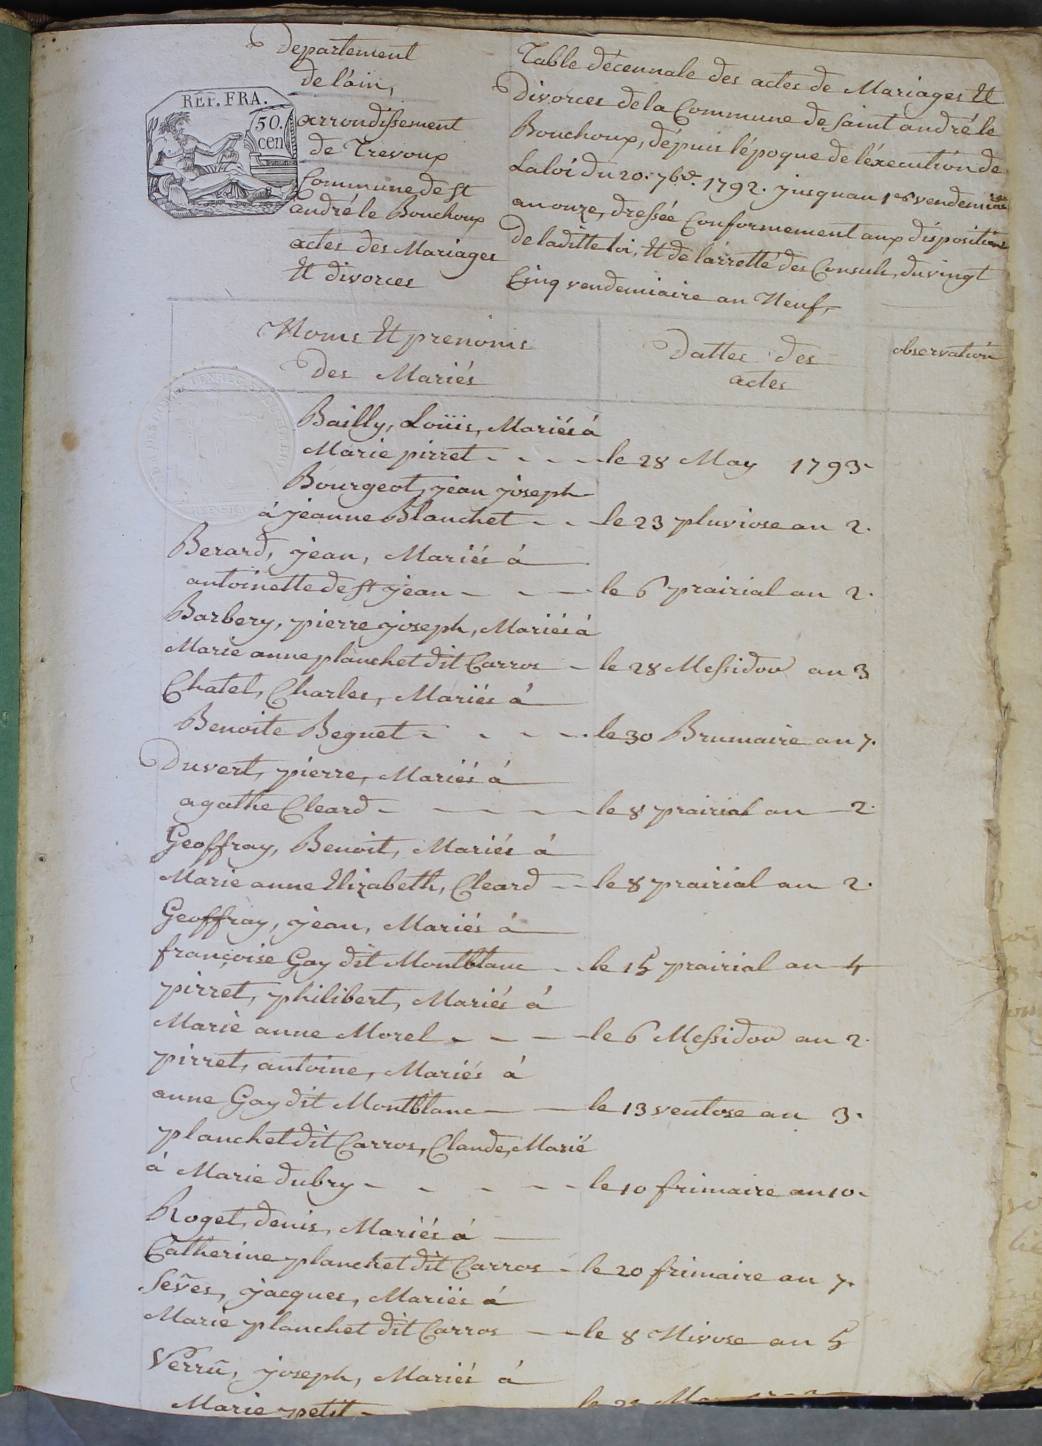 Departement
de l'ain,
arrondissement
de Trevoux
Commune de st
andré le Bouchoux
actes des Mariages
Et divorces
REP. FRA.
50.
cen
Table décennale des actes de Mariages Et
Divorces de la Commune de saint andré le
Bouchoux, dépuis l'époque de l'éxecution de
La loi du 20. 7bre. 1792. jusquau 1er vendemiaire
an onze, dressée Conformement aux dispositions
De la ditte loi, Et de l'arretté des Consuls, du vingt
Cinq vendemiaire an Neuf,
Noms Et prenoms
Des Mariés
Dattes des
actes
observation
Bailly, Loüis, Mariés à
Marie pirret - - - - le 28 May 1793.
Bourgeot, jean joseph
à jeanne Blanchet - - le 23 pluviose an 2.
Berard, jean, Mariés à
antoinette de st jean - - - le 6 prairial an 2.
Barbery, pierre joseph, Mariés à
Marie anne planchet dit Carros - le 28 Messidor an 3
Chatel, Charles, Mariés à
Benoite Beguet - - - - . le 30 Brumaire an 7.
Duvert, pierre, Mariés à
agathe Cleard - - - - - le 8 prairial an 2.
Geoffray, Benoit, Mariés à
Marie anne Elizabeth, Cleard - - le 8 prairial an 2.
Geoffray, jean, Mariés à
françoise Gay dit Montblanc - . le 15 prairial an 4
pirret, philibert, Mariés à
Marie anne Morel - - - - le 6 Messidor an 2.
pirret, antoine, Mariés à
anne Gay dit Montblanc - - le 13 ventose an 3.
planchet dit Carros, Claude, Marié
à Marie dubry - - - - - le 10 frimaire an 10.
Roget, denis, Mariés à
Catherine planchet dit Carros - le 20 frimaire an 7.
Seves, jacques, Mariés à
Marie planchet dit Carros - - le 8 Nivose an 5
Verrû, joseph, Mariés à
Marie petit - le